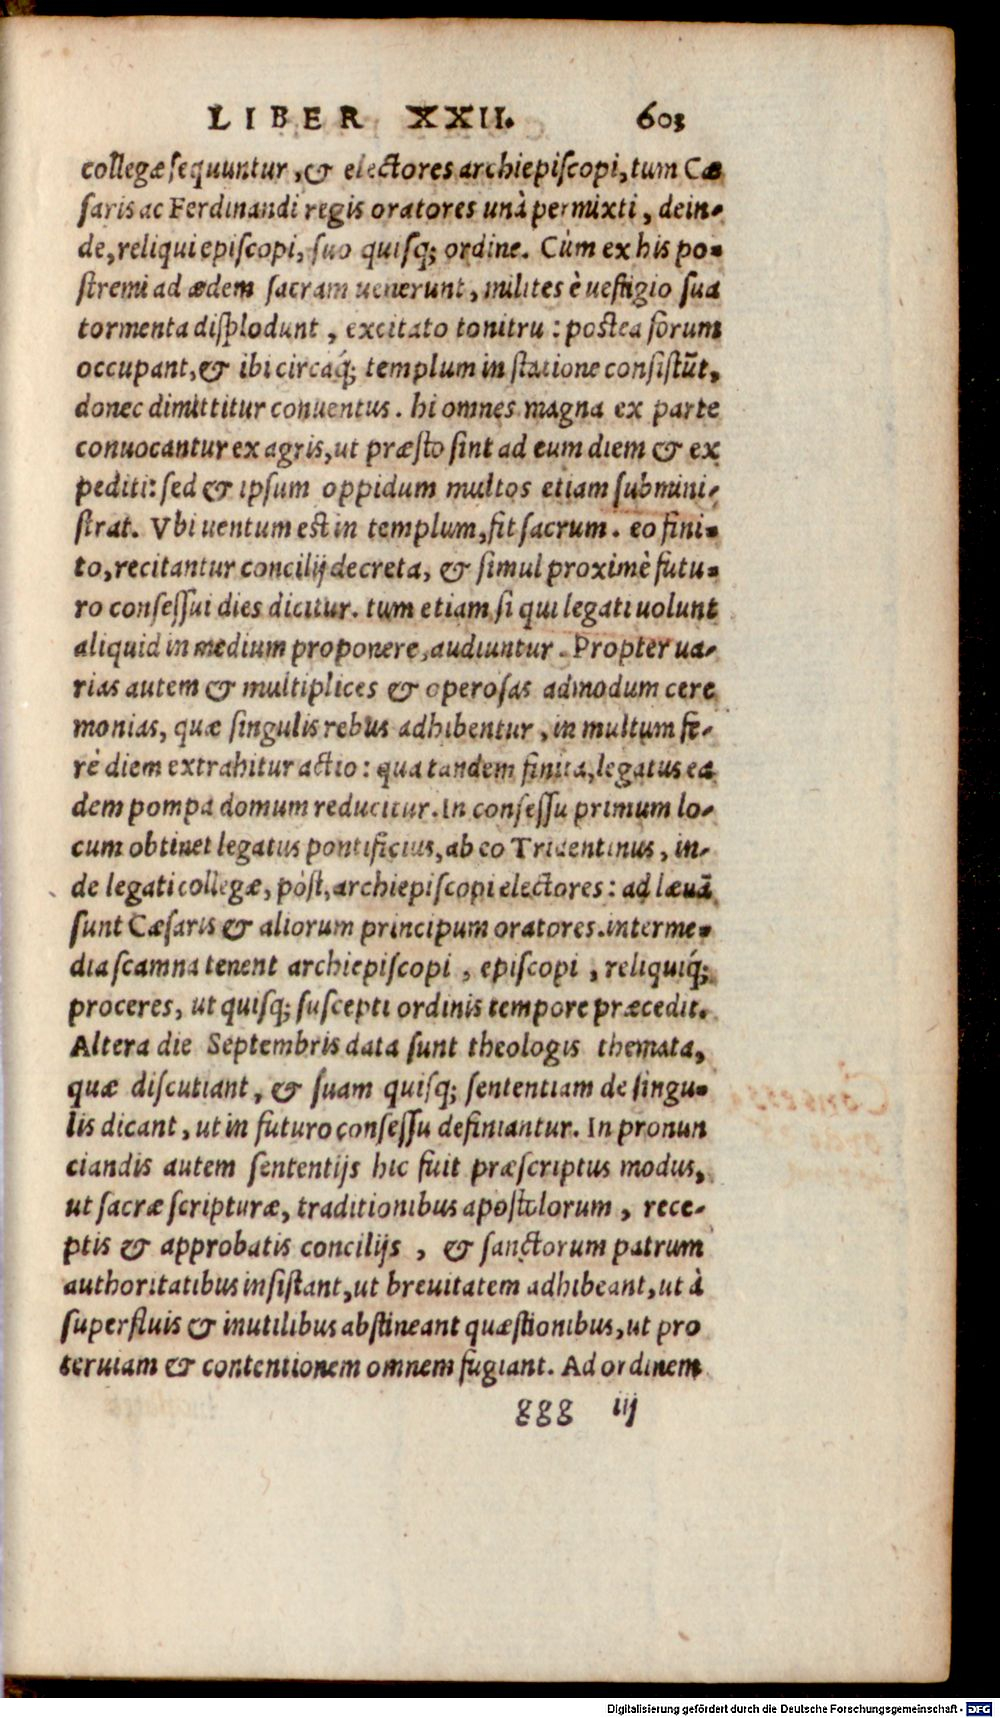 LIBER XXII. 603
collegæ sequuntur, & electores archiepiscopi, tum Cæ
saris ac Ferdinandi regis oratores unà permixti, dein-
de, reliqui episcopi, suo quisq; ordine. Cùm ex his po-
stremi ad ædem sacram uenerunt, milites è uestigio sua
tormenta displodunt, excitato tonitru: postea forum
occupant, & ibi circaq́; templum in statione consistũt,
donec dimittitur conuentus. hi omnes magna ex parte
conuocantur ex agris, ut præsto sint ad eum diem & ex
pediti: sed & ipsum oppidum multos etiam submini-
strat. Vbi uentum est in templum, fit sacrum. eo fini-
to, recitantur concilij decreta, & simul proximè futu-
ro consessui dies dicitur. tum etiam si qui legati uolunt
aliquid in medium proponere, audiuntur. Propter ua-
rias autem & multiplices & operosas admodum cere
monias, quæ singulis rebus adhibentur, in multum fe-
rè diem extrahitur actio: qua tandem finita, legatus ea
dem pompa domum reducitur. In consessu primum lo-
cum obtinet legatus pontificius, ab eo Tridentinus, in-
de legati collegæ, pòst, archiepiscopi electores: ad læuã
sunt Cæsaris & aliorum principum oratores. interme-
dia scamna tenent archiepiscopi, episcopi, reliquiq́;
proceres, ut quisq; suscepti ordinis tempore præcedit.
Altera die Septembris data sunt theologis themata,
quæ discutiant, & suam quisq; sententiam de singu-
lis dicant, ut in futuro consessu definiantur. In pronun
ciandis autem sententijs hic fuit præscriptus modus,
ut sacræ scripturæ, traditionibus apostolorum, rece-
ptis & approbatis concilijs, & sanctorum patrum
authoritatibus insistant, ut breuitatem adhibeant, ut à
superfluis & inutilibus abstineant quæstionibus, ut pro
teruiam & contentionem omnem fugiant. Ad ordinem
ggg iij
Digitalisierung gefördert durch die Deutsche Forschungsgemeinschaft - DFG